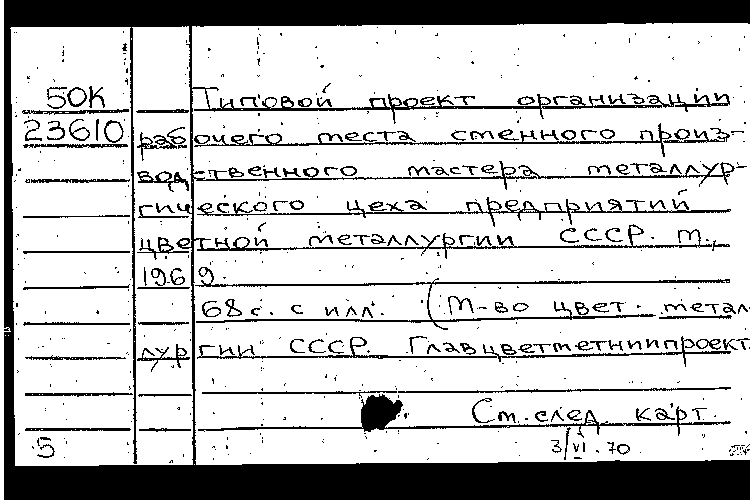 50К Типовой проект организации
23610 рабочего места сменного произ-
водственного мастера металлур-
гического цеха предприятий
цветной металлургии СССР. М.,
1969.
68 с. с илл. (М-во цвет. метал-
лургии СССР. Главцветметниипроект
См. след. карт.
5 3/VI.70